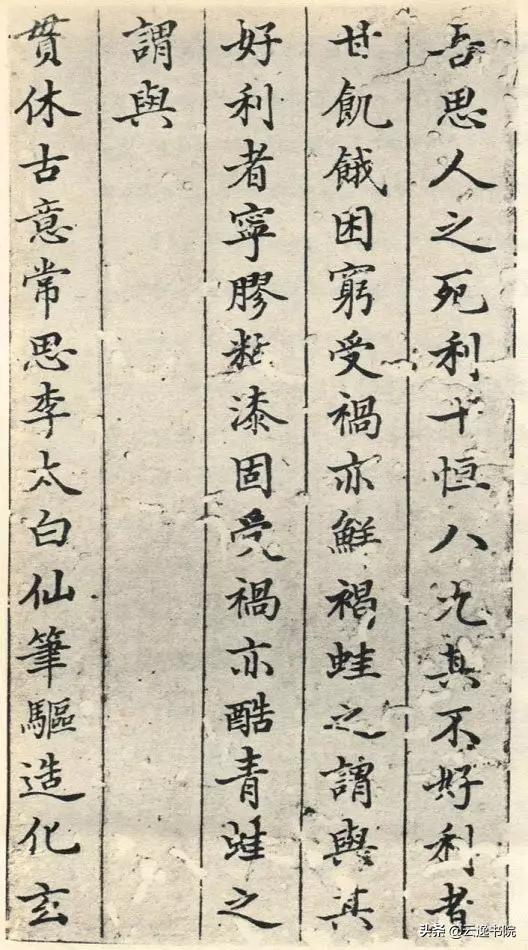 吾思人之死利十恒八九其不好利者
甘飢餓困窮受禍亦鮮褐蛙之謂與其
好利者寧膠粘漆固受禍亦酷青蛙之
謂與
貫休古意常思李太白仙筆驅造化玄
头条 @云逸书院